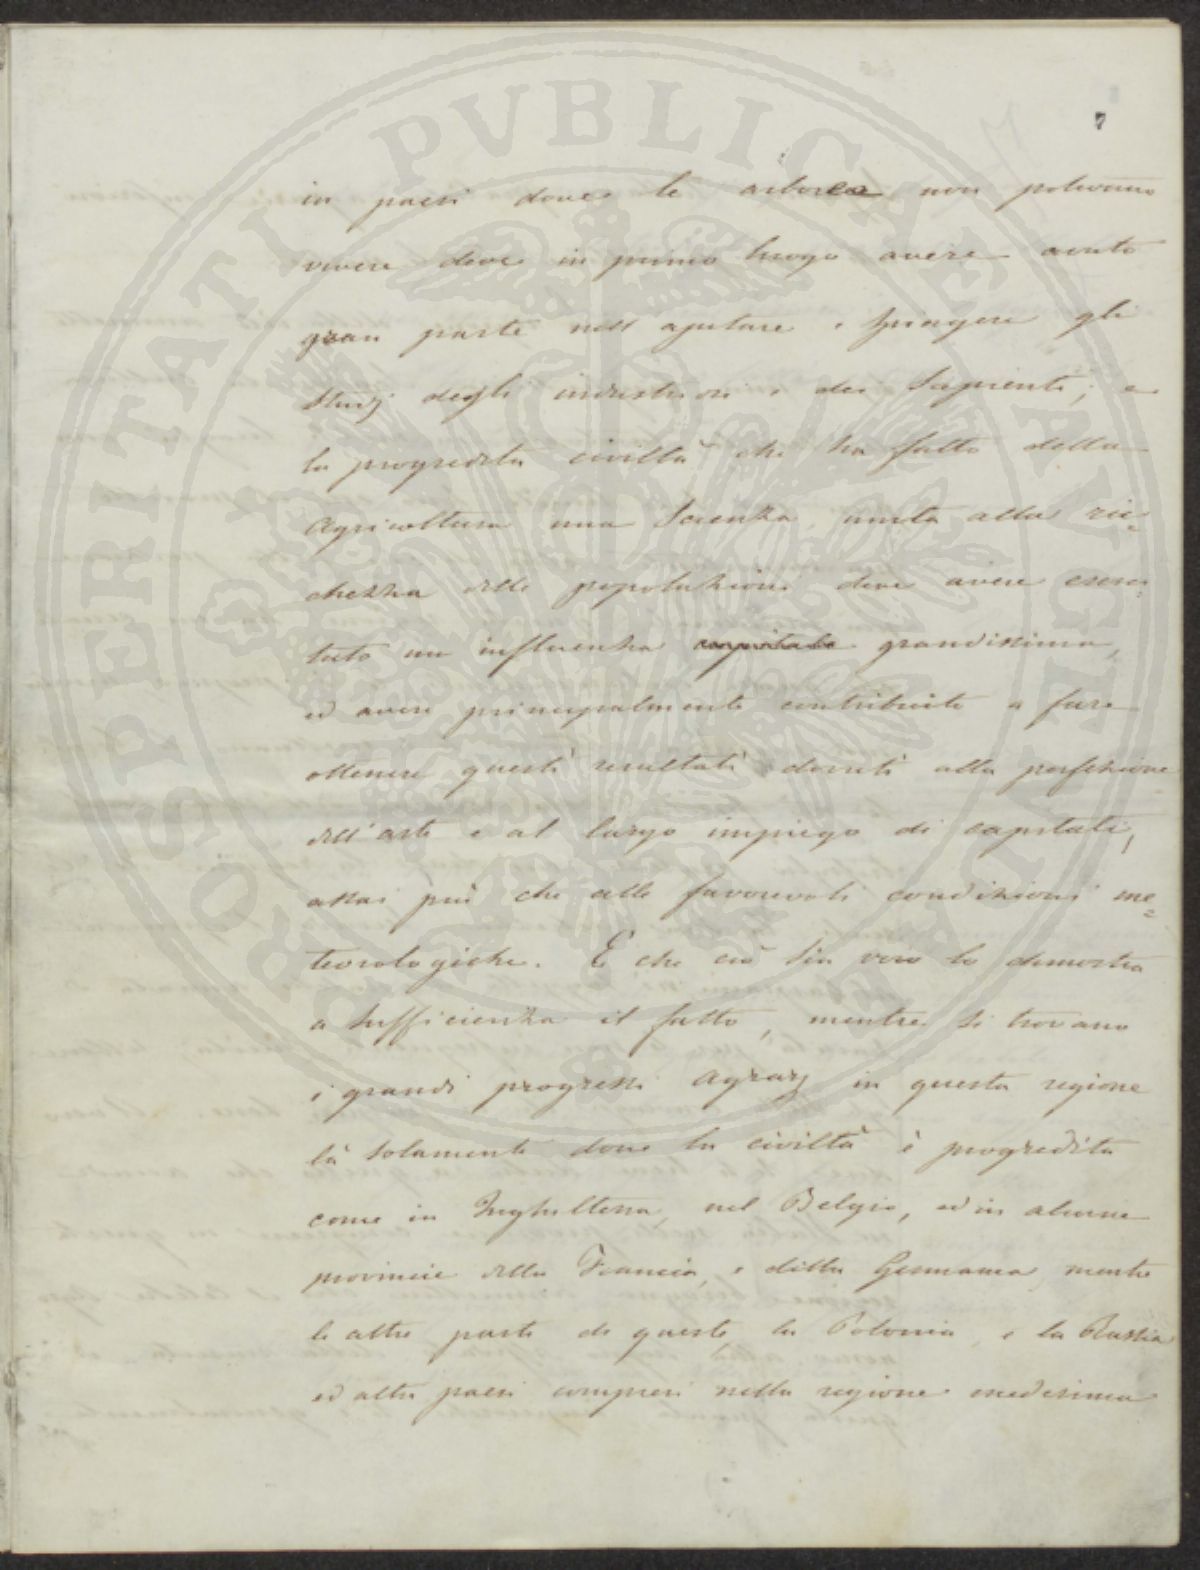 7
in paesi dove le arboree non potevano
vivere deve in primo luogo avere avuto
gran parte nell'ajutare e spingere gli
studj degli industriosi e dei Sapienti; e
la progredita civiltà che ha fatto della
Agricoltura una Scienza unita alla ric=
chezza delle popolazioni deve avere eserci
tato un influenza grandissima,
ed avere principalmente contribuito a fare
ottenere questi resultati dovuti alla perfezione
dell'arte e al largo impiego di capitali,
assai più che alle favorevoli condizioni me=
teorologiche. E che ciò sia vero lo dimostra
a sufficienza il fatto, mentre si trovano
i grandi progressi Agrarj in questa regione
là solamente dove la civiltà è progredita
come in Inghilterra, nel Belgio, ed in alcune
provincie della Francia, e della Germania mentre
le altre parti di queste, la Polonia, e la Russia
ed altri paesi compresi nella regione medesima
PROSPERITATI PVBLICAE AVGENDAE